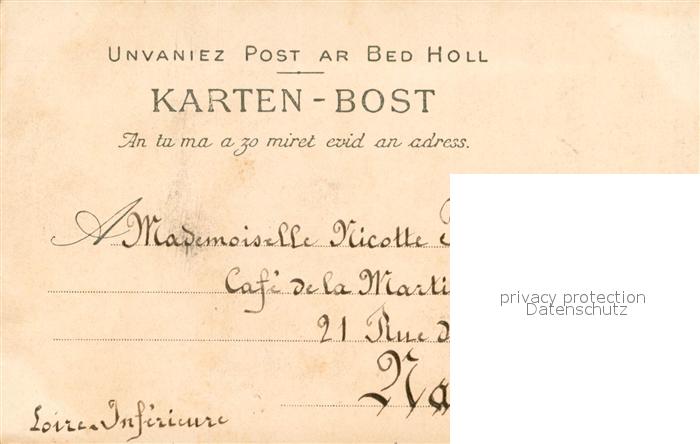 UNVANIEZ POST AR BED HOLL
KARTEN-BOST
An tu ma a zo miret evid an adress.
A Mademoiselle Nicotte
Café de la Marti
21 Rue d
Na
Loire-Inférieure
privacy protection
Datenschutz